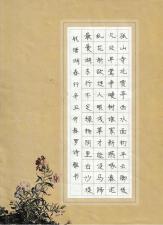 孤山寺北賈亭西水面初平云脚低
几处早莺争暖樹谁家新燕啄春泥
乱花渐欲迷人眼浅草才能没马蹄
最愛湖东行不足绿杨阴里白沙堤
钱塘湖春行辛丑仲春罗诗雅书